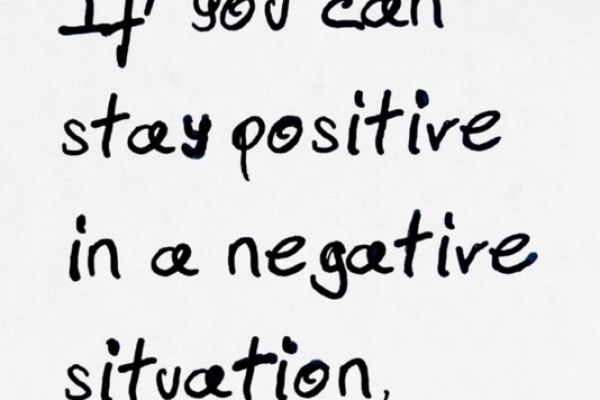 If you can
stay positive
in a negative
situation,